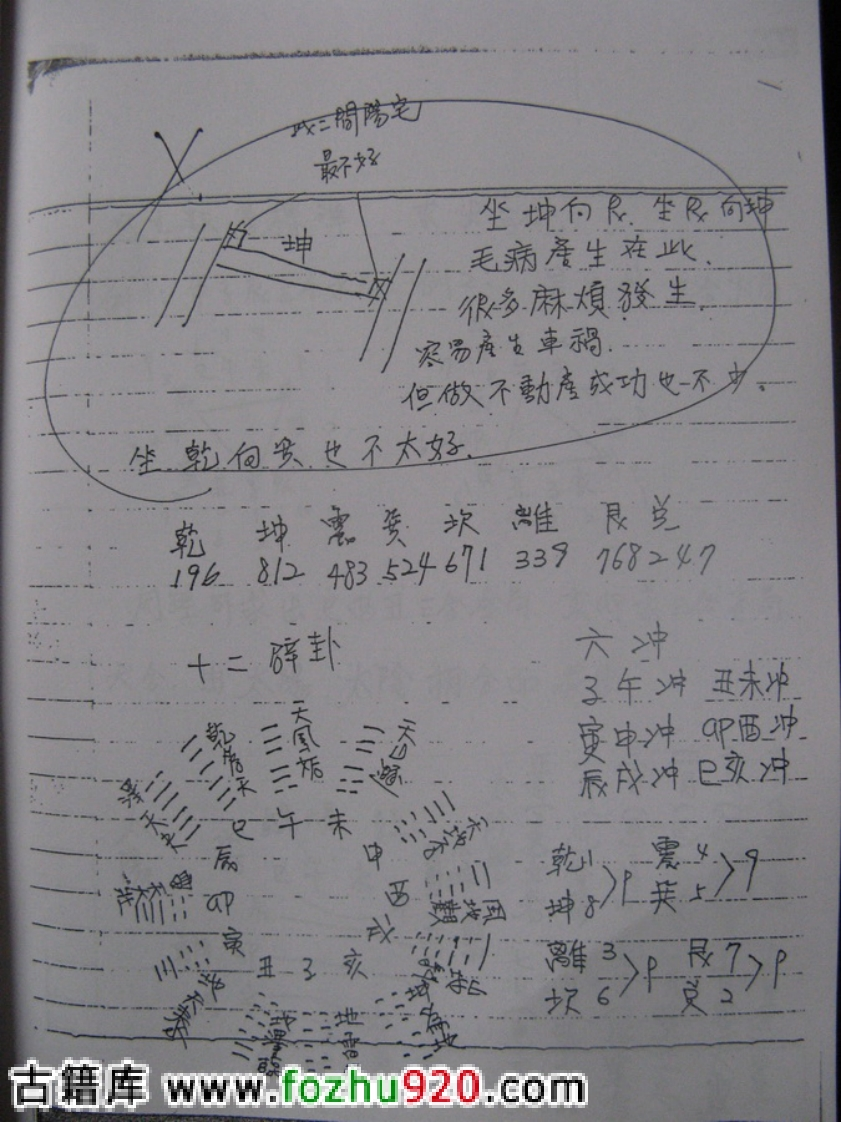 此二間陽宅
最不好
坤
坐坤向艮.坐艮向坤
毛病產生在此.
很多麻煩發生.
容易產生車禍.
但做不動產成功也不少。
坐乾向巽也不太好.
乾 坤 震 巽 坎 離 艮 兌
196 812 483 524 671 339 768 247
十二辟卦
六冲
子午冲 丑未冲
寅申冲 卯酉冲
辰戌冲 巳亥冲
乾為天
天風姤
天山遯
巳 午 未
辰 申
卯 酉
寅 戌
丑 子 亥
乾1 坤8 >9 震4 巽5 >9
離3 坎6 >9 艮7 兌2 >9
古籍库 www.fozhu920.com